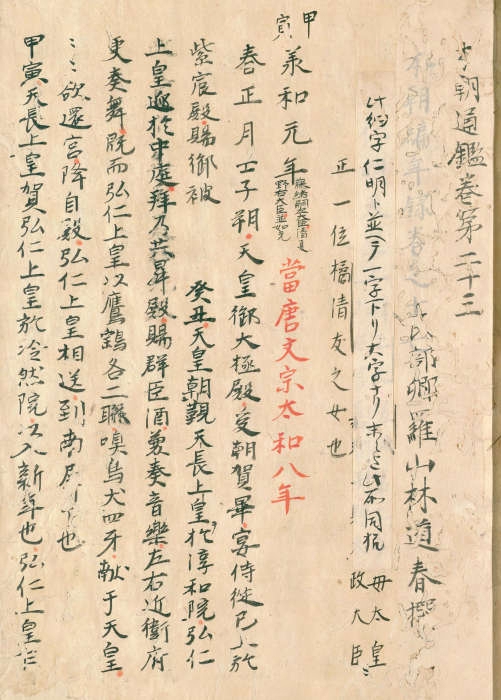 本朝通鑑巻第二十三
本朝編年録巻之
民部卿羅山林道春撰
此釣字仁明ト並今一字下リ大字ナリ
不同格
母太皇
正一位橘清友之女也
政大臣
甲寅
承和元年
當唐文宗太和八年
春正月壬子朔天皇御大極殿受朝賀畢宴侍従已
紫宸殿賜御被
癸丑天皇朝覲天長上皇於淳和院弘仁
上皇迎於中庭拜乃共昇殿賜群臣酒兼奏音樂左右近衛府
更奏舞既而弘仁上皇以鷹鷂各二聯嗅鳥犬四牙献于天皇
〻〻欲還宮降自殿弘仁上皇相送到南屏下也
甲寅天長上皇賀弘仁上皇於冷然院以入新年也弘仁上皇